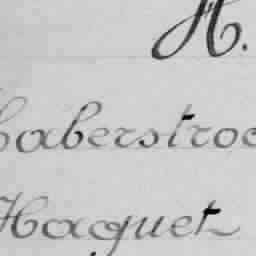 H.
Haberstroc
Haquet